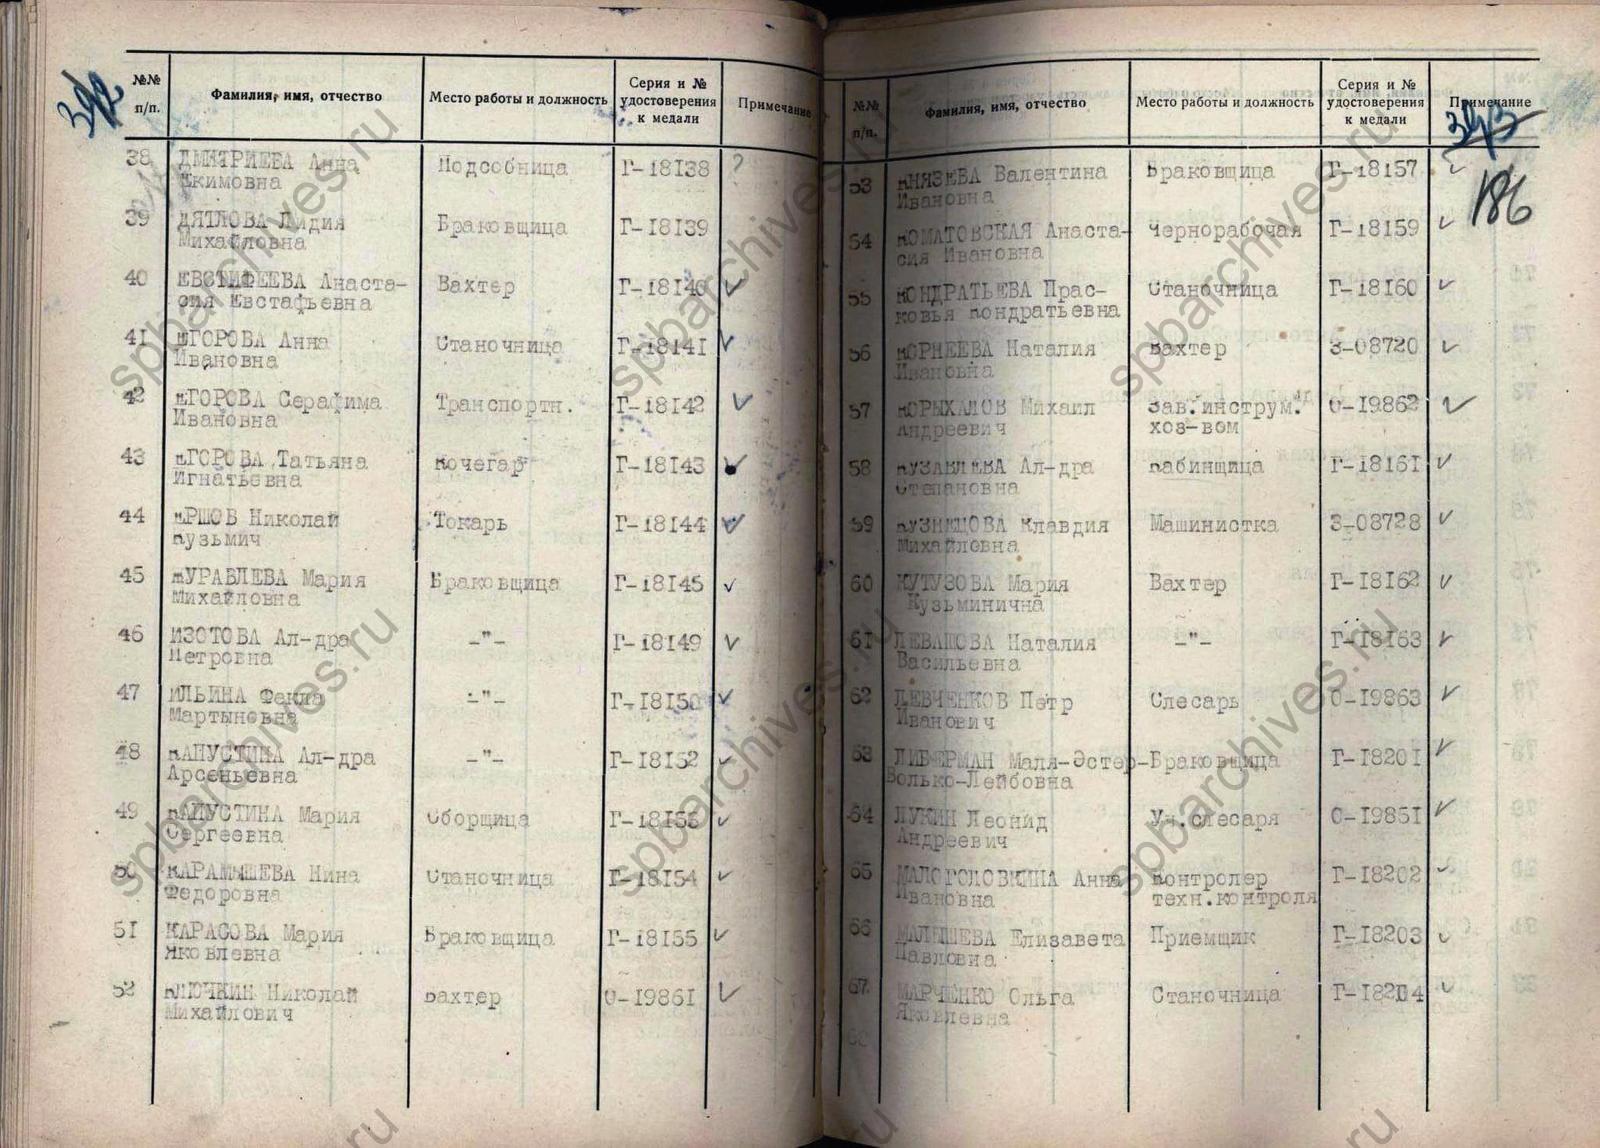 №№ п/п.
Фамилия, имя, отчество
Место работы и должность
Серия и № удостоверения к медали
Примечание
38 ДМИТРИЕВА Анна Подсобница Г-18138
Екимовна
39 ДЯТЛОВА Лидия Браковщица Г-18139
Михайловна
40 ЕВСТИФЕЕВА Анаста- Вахтер Г-18140
сия Евстафьевна
41 ЕГОРОВА Анна Станочница Г-18141
Ивановна
42 ЕГОРОВА Серафима Транспортн. Г-18142
Ивановна
43 ЕГОРОВА Татьяна Кочегар Г-18143
Игнатьевна
44 ЕРШОВ Николай Токарь Г-18144
Кузьмич
45 ЖУРАВЛЕВА Мария Браковщица Г-18145
Михайловна
46 ИЗОТОВА Ал-дра -"- Г-18149
Петровна
47 ИЛЬИНА Фекла -"- Г-18150
Мартыновна
48 КАПУСТИНА Ал-дра -"- Г-18152
Арсеньевна
49 КАПУСТИНА Мария Сборщица Г-18153
Сергеевна
50 КАРАМЫШЕВА Нина Станочница Г-18154
Федоровна
51 КАРАСОВА Мария Браковщица Г-18155
Яковлевна
52 КЛЮЧКИН Николай Вахтер О-19861
Михайлович
№№ п/п.
Фамилия, имя, отчество
Место работы и должность
Серия и № удостоверения к медали
Примечание
186
53 КНЯЗЕВА Валентина Браковщица Г-18157
Ивановна
54 КОМАТОВСКАЯ Анаста- Чернорабочая Г-18159
сия Ивановна
55 КОНДРАТЬЕВА Прас- Станочница Г-18160
ковья Кондратьевна
56 КОРНЕЕВА Наталия Вахтер З-08720
Ивановна
57 КОРЫХАЛОВ Михаил Зав.инструм. О-19862
Андреевич хоз-вом
58 Ал-дра Кабинщица Г-18161
Степановна
59 КУЗНЕЦОВА Клавдия Машинистка З-08728
Михайловна
60 КУТУЗОВА Мария Вахтер Г-18162
Кузьминична
61 ЛЕВАШОВА Наталия -"- Г-18163
Васильевна
62 ЛЕВЧЕНКОВ Петр Слесарь О-19863
Иванович
63 ЛИБЕРМАН Маля-Эстер- Браковщица Г-18201
Волько-Лейбовна
64 ЛУКИН Леонид Уч.слесаря О-19851
Андреевич
65 МАЛОГОЛОВКИНА Анна Контролер Г-18202
Ивановна техн.контроля
66 МАЛЫШЕВА Елизавета Приемщик Г-18203
Павловна
67 МАРЧЕНКО Ольга Станочница Г-18204
Яковлевна
68
spbarchives.ru
spbarchives.ru
spbarchives.ru
spbarchives.ru
spbarchives.ru
spbarchives.ru